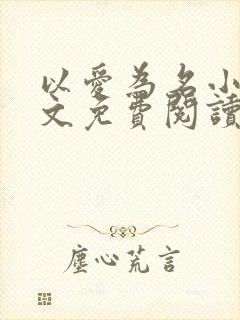 以愛為名小
文免費閱讀
塵心荒言